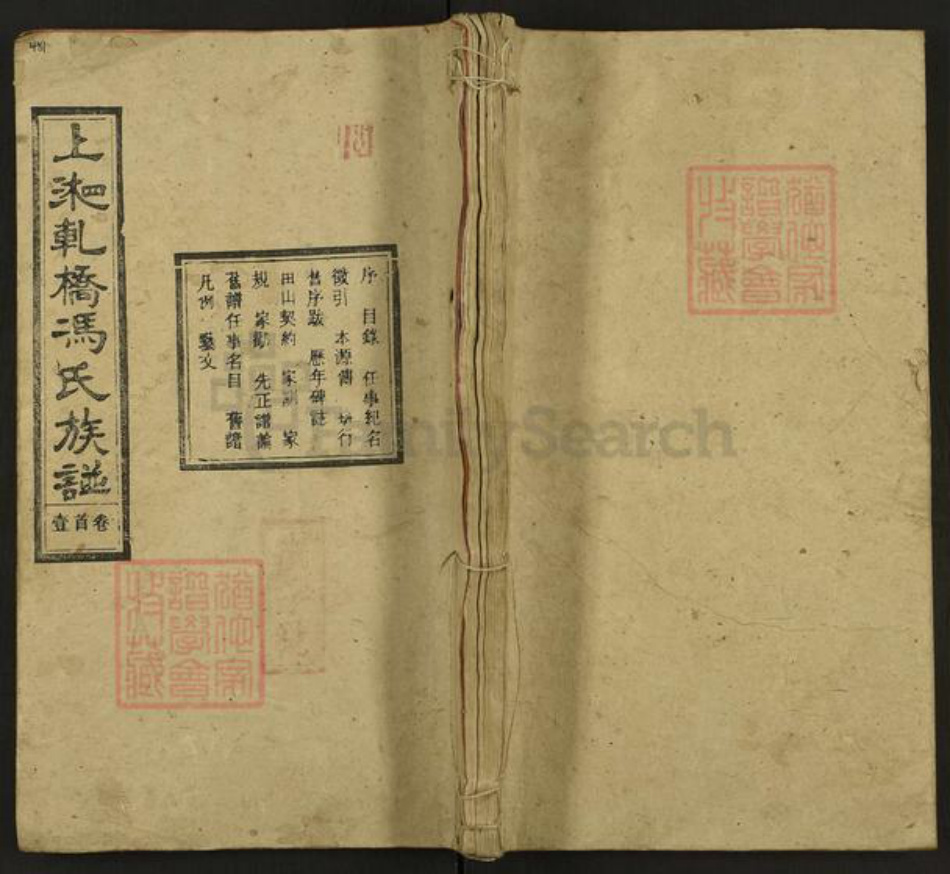 上湘軋橋馮氏族譜
卷首壹
序 目錄 任事紀名
徵引 本源傳
舊序跋 歷年碑誌
田山契約 家訓 家
規 家勸 先正譜論
舊譜任事名目 舊譜
凡例 藝文
猶他家
譜學會
收藏
猶他家
譜學會
收藏
FamilySearch